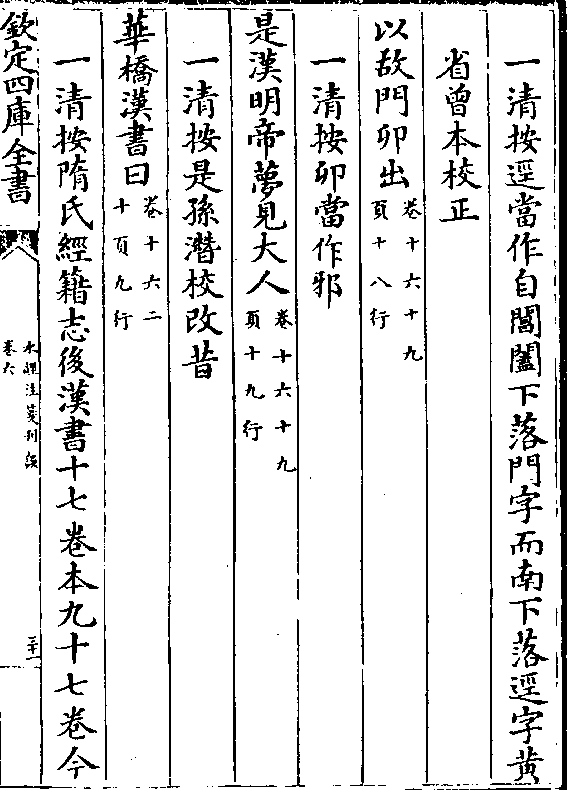 一清按逕當作自閶闔下落門字而南下落逕字黄
省曾本校正
以故門卯出卷十六十九頁十八行
一清按卯當作邪
是漢明帝夢見大人卷十六十九頁十九行
一清按是孫潛校改昔
華橋漢書曰卷十六二十頁九行
一清按隋氏經籍志後漢書十七卷本九十七卷今
欽定四庫全書
水經注箋刊誤
卷六
三十一